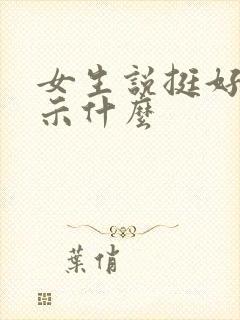 女生説挺好
示什麼
葉俏